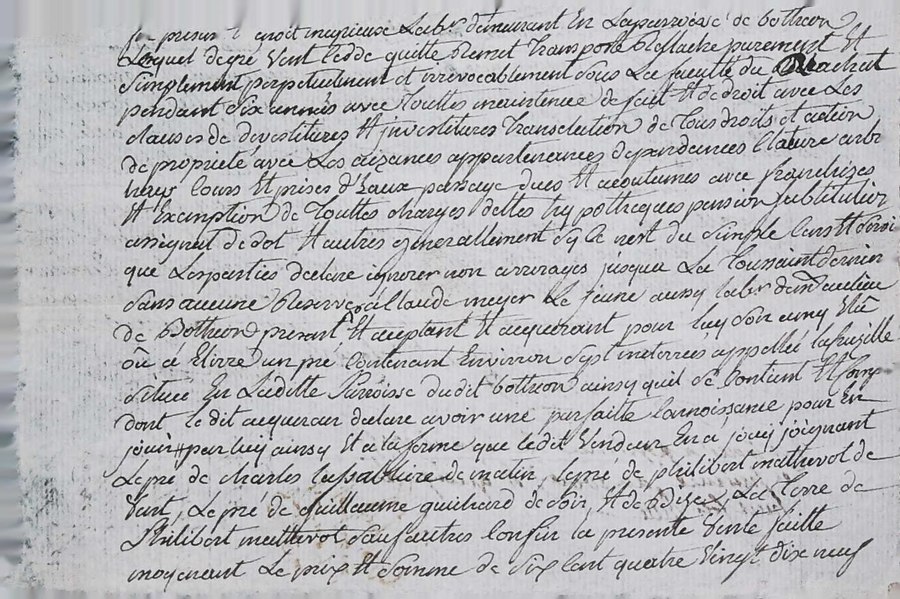 fu present benoit magnieux Lab.r demeurant En La parroisse de bothéon
Lequel de gré vent Cedde quitte Remet transporte Relache purement Et
Simplement perpetuellement et irrévocablement sous La faculté du Reachat
pendant Six années avec touttes maintenües de fait Et de droit avec Les
clauses de devestitures Et jnvestitures translaction de tous droits et action
de propriété avec Les aizances appartenances dependances Cloture arbr
heres Cours Et prises d'Eaux passage dues Et acoutumés avec franchises
Et Exemption de touttes charges dettes hypothecques pension substitution
assignat de dot Et autres generallement sy Ce nest du simple Cens Et servi
que Les parties declare ignorer non arrerages jusqua La toussaint dernier
sans aucune Reserve, a Claude meyer Le jeune aussy labr dem.t audit lieu
de Bothéon present Et acceptant Et acquerant pour luy Son amy Elû
ou à Elire un pré Contenant Environ Sept meterées appellée la fuzille
située En Laditte Paroisse dudit bothéon ainsy quil Se Contient Et Comp
dont ledit acquereur declare avoir une parfaitte Connoissance pour En
jouir par luy ainsy Et a la forme que ledit Vendeur En a jouy joignant
Le pré de charles de matin, le pré de philibert mathevot de
Vent, Le pré de Guillaume guichard de Soir, Et de Bize La terre de
Philibert mathevot Sauf autres Confin la presente Vente faitte
moyenant Le prix Et Somme de Six Cent quatre Vingt dix neuf